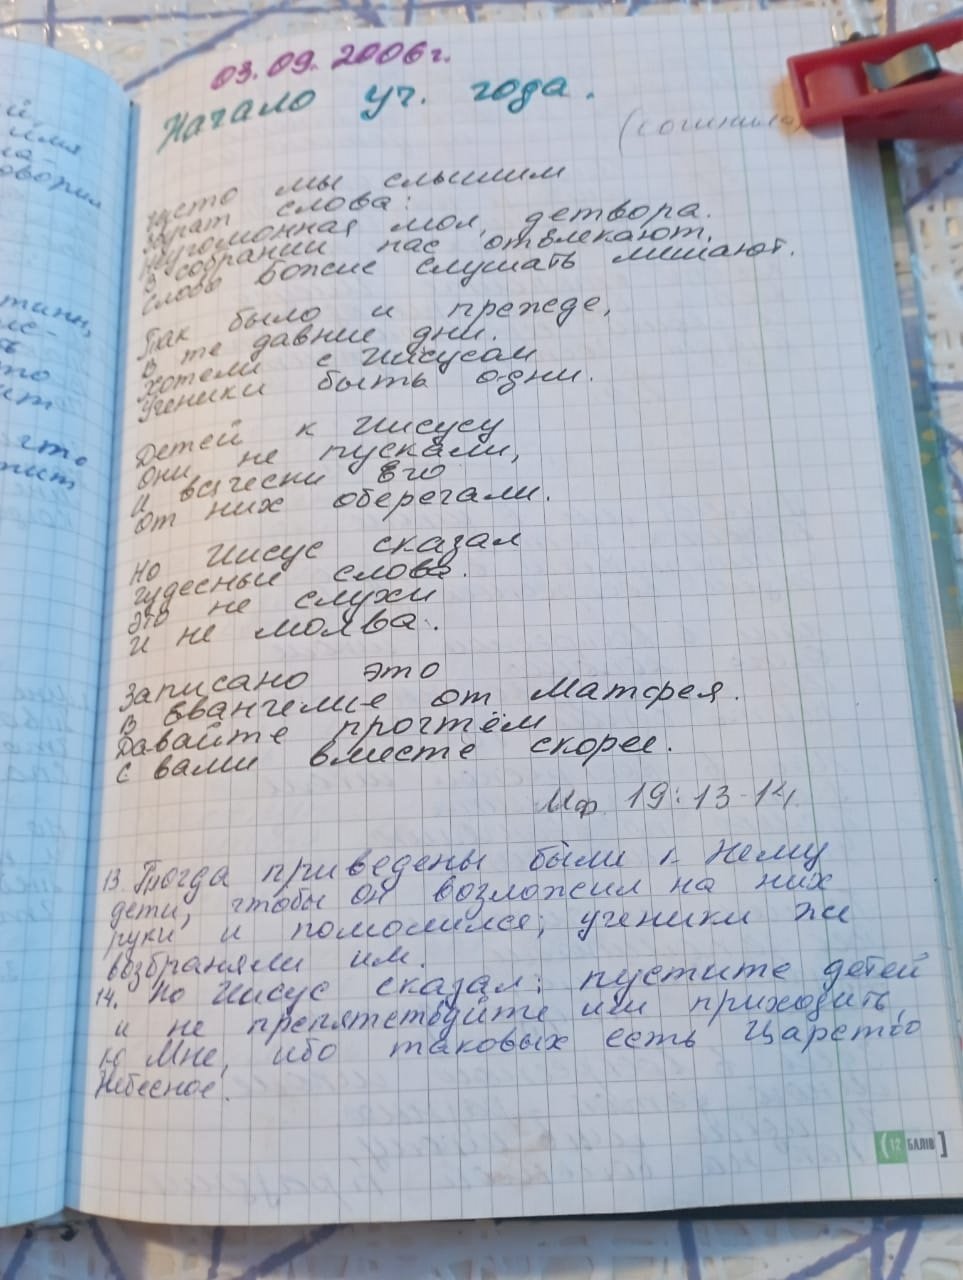 03.09.2006г.
Начало уч. года.
(сочинила)
Часто мы слышим
звучат слова:
Неугомонная мол, детвора.
В собрании нас отвлекают,
Слово Божие слушать мешают.
Так было и прежде,
В те давние дни.
Хотели с Иисусом
Ученики быть одни.
Детей к Иисусу
Они не пускали,
И всячески Его
От них оберегали.
Но Иисус сказал
чудесные слова.
Это не слухи
И не молва.
Записано это
В Евангелие от Матфея.
Давайте прочтём
С вами вместе скорее.
Мф. 19:13-14.
13. Тогда приведены были к Нему
дети, чтобы Он возложил на них
руки и помолился; ученики же
возбраняли им.
14. Но Иисус сказал: пустите детей
и не препятствуйте им приходить
ко Мне, ибо таковых есть Царство
Небесное.
(12 БАЛІВ]